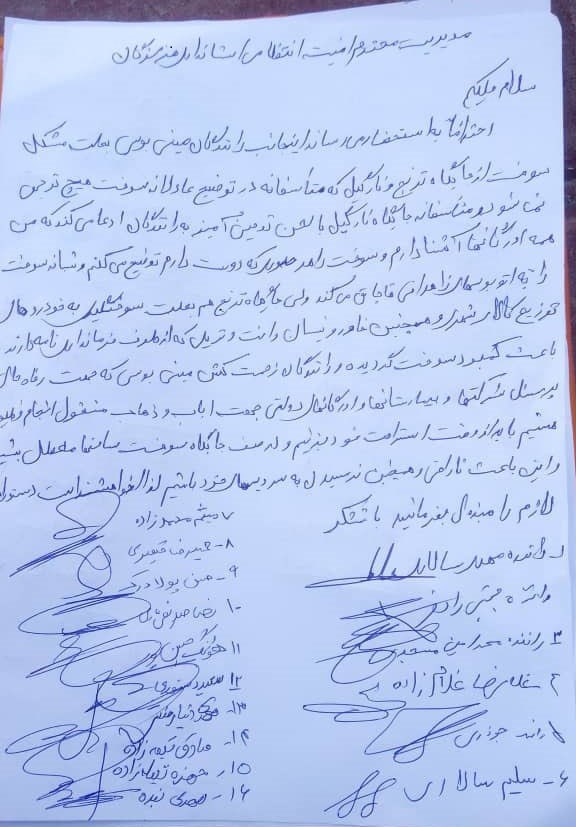 مدیریت محترم امنیت انتظامی استانداری هرمزگان
سلام علیکم
احتراماً به استحضار می رساند اینجانب رانندگان مینی بوس بعلت مشکل
سوخت از جایگاه ترنج و نارگیل که متأسفانه در توضیع عادلانه سوخت هیچ ترحمی
نمی شود و متأسفانه جایگاه نارگیل با لحن توهین آمیز به رانندگان ادعا می کند که من
همه اورگانها آشنا دارم و سوخت را هر طور که دوست دارم توضیع می کنم و شبانه سوخت
را به اتوبوسهای زاهدانی قاچاق می کند ولی جایگاه ترنج هم بعلت سوخت به خودروهای
توزیع کالای شهری و همچنین خاور و نیسان و وانت و تریل که از طرف فرمانداری نامه دارند
باعث کمبود سوخت گردیده و رانندگان زحمت کش مینی بوسی که جهت رفاه حال
پرسنل شرکتها و بیمارستانها و اورگانهای دولتی جهت ایاب و ذهاب مشغول انجام وظیفه
هستیم باید از وقت استراحت خود بزنیم و در صف جایگاه سوخت ساعتها معطل بشیم
و این باعث ناراضی و همچنین نرسیدن به سرویسهای خود باشیم لذا خواهشمند است دستورات
لازم را مبذول بفرمائید با تشکر
راننده محمد سالاری
راننده مجتبی
۳ راننده محمد امین
۴ غلامرضا غلام زاده
۵ راننده
۶- سلیم سالاری
۷ میثم محمدزاده
۸- حمیدرضا
۹-
۱۰ رضا
۱۱ هوشنگ
۱۲ سعید
۱۳-
۱۴- صادق
۱۵- حمزه
۱۶- مهدی